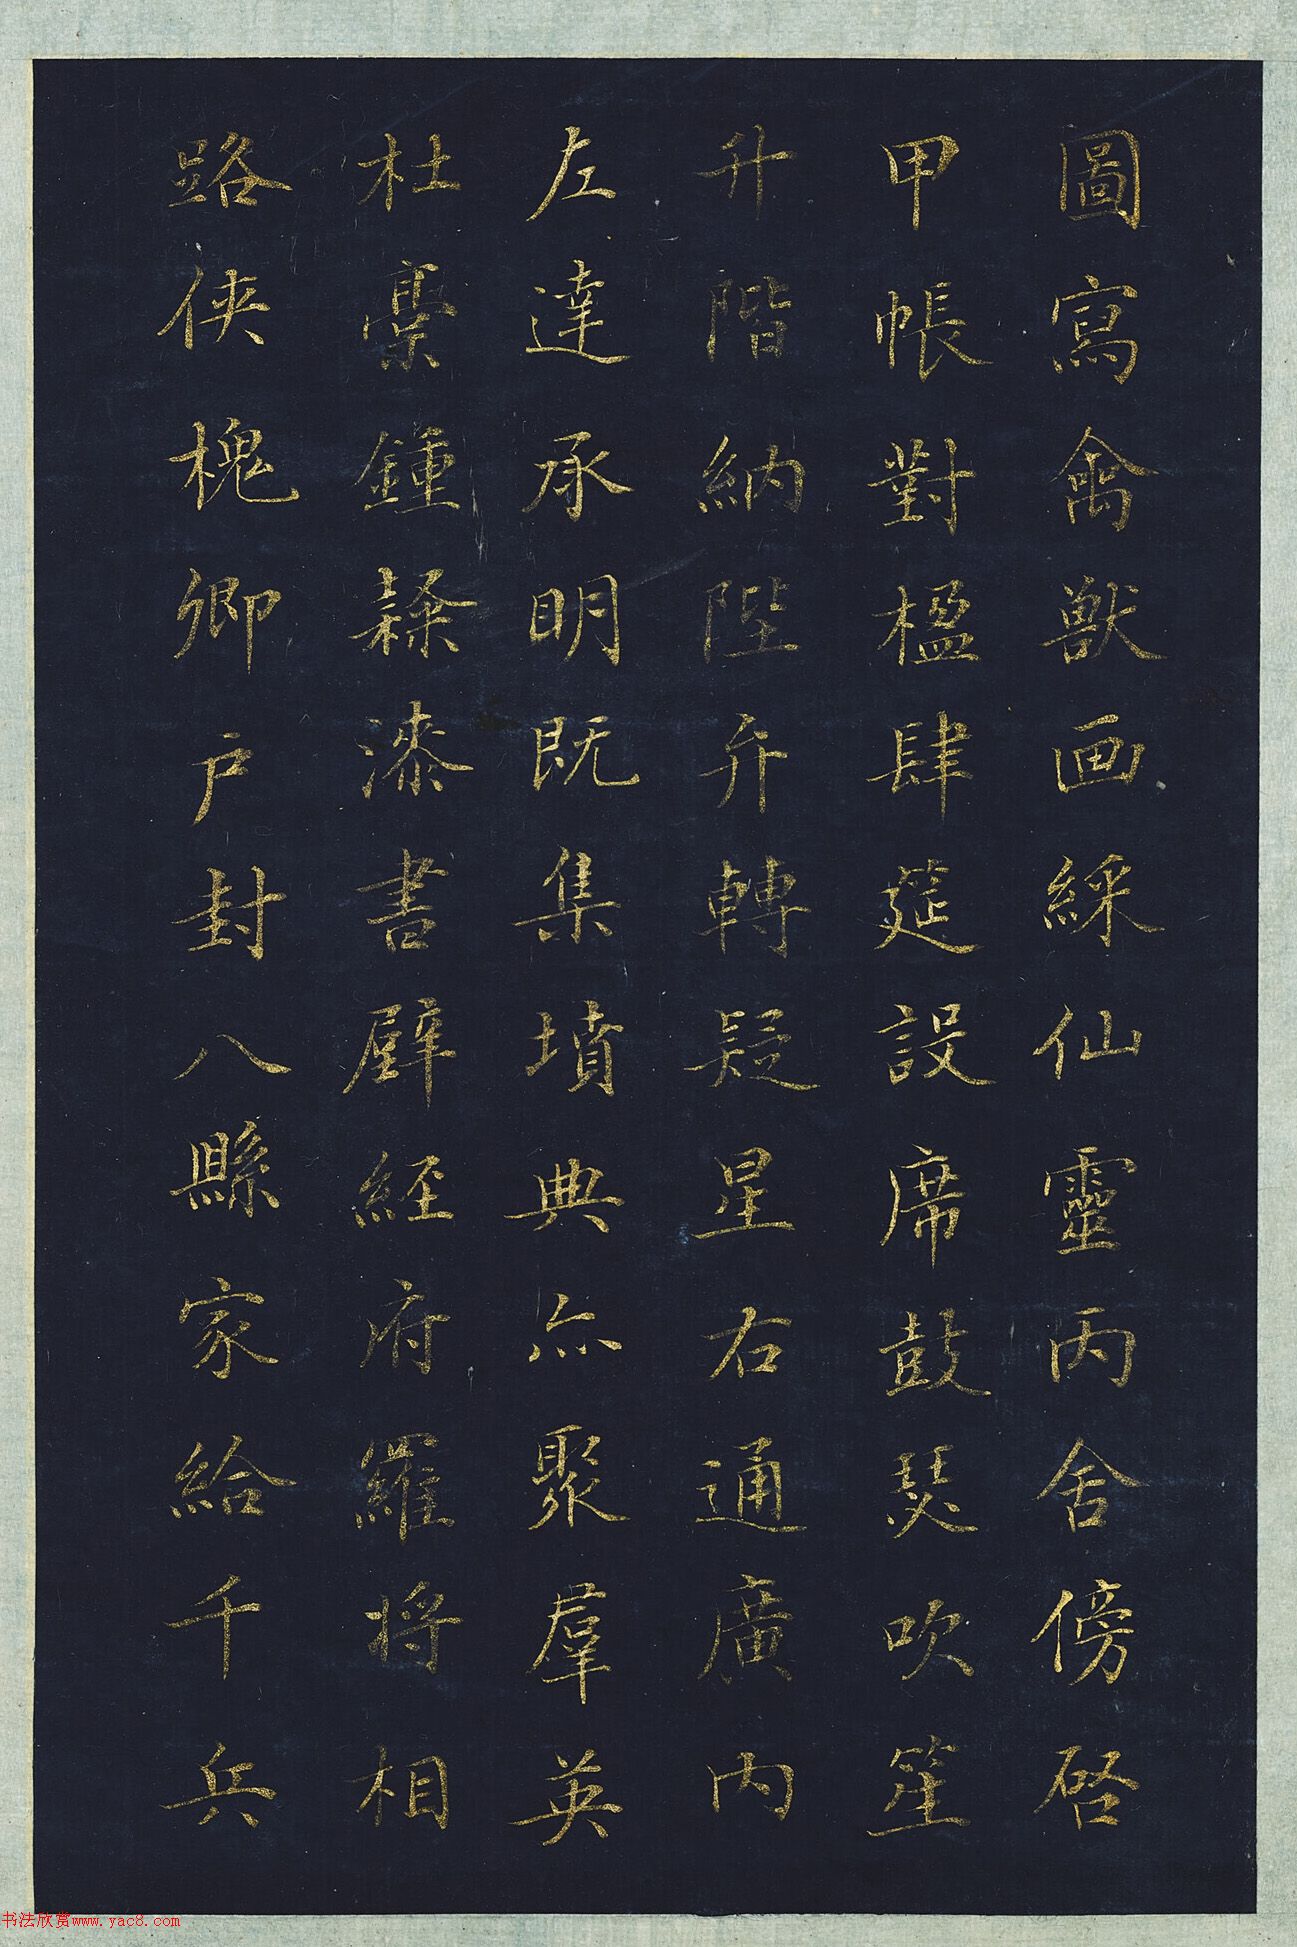 圖寫禽獸画綵仙靈丙舍傍啓
甲帳對楹肆筵設席鼓瑟吹笙
升階納陛弁轉疑星右通廣內
左達承明既集墳典亦聚羣英
杜稾鍾隸漆書壁經府羅將相
路俠槐卿户封八縣家給千兵
书法欣赏www.yac8.com